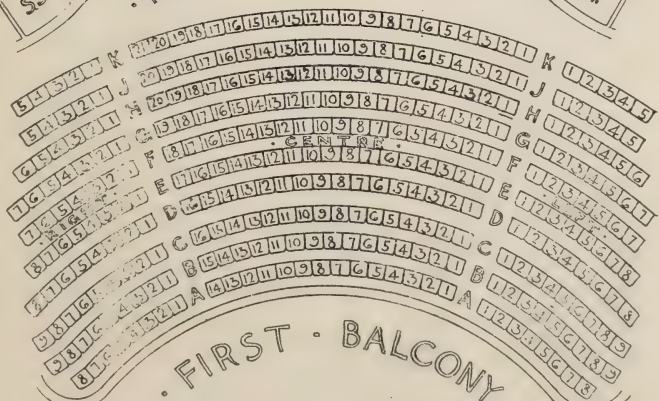 5 4 3 2 1 K 21 20 19 18 17 16 15 14 13 12 11 10 9 8 7 6 5 4 3 2 1 K 1 2 3 4 5
5 4 3 2 1 J 20 19 18 17 16 15 14 13 12 11 10 9 8 7 6 5 4 3 2 1 J 1 2 3 4 5
6 5 4 3 2 1 H 20 19 18 17 16 15 14 13 12 11 10 9 8 7 6 5 4 3 2 1 H 1 2 3 4 5 6
7 6 5 4 3 2 1 G 19 18 17 16 15 14 13 12 11 10 9 8 7 6 5 4 3 2 1 G 1 2 3 4 5 6 7
7 6 5 4 F 18 17 16 15 14 13 12 11 10 9 8 7 6 5 4 3 2 1 F 1 2 3 4 5 6 7
RIGHT · CENTRE ·
8 7 6 5 4 3 2 1 E 17 16 15 14 13 12 11 10 9 8 7 6 5 4 3 2 1 E 1 2 3 4 5 6 7 8
8 7 6 5 4 3 2 1 D 16 15 14 13 12 11 10 9 8 7 6 5 4 3 2 1 D 1 2 3 4 5 6 7 8
9 8 7 6 2 1 C 16 15 14 13 12 11 10 9 8 7 6 5 4 3 2 1 C 1 2 3 4 5 6 7 8 9
9 8 7 6 3 2 1 B 15 14 13 12 11 10 9 8 7 6 5 4 3 2 1 B 1 2 3 4 5 6 7 8 9
8 7 6 3 2 1 A 14 13 12 11 10 9 8 7 6 5 4 3 2 1 A 1 2 3 4 5 6 7 8
· FIRST · BALCONY